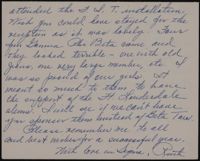 attended the S. S. T. installation.
Wish you could have stayed for the
reception as it was lovely. Four
from Lamma the Beta came and
they looked terrible - one with old
jeans, one very large number, etc. I
was so proud of our girls. It
meant so much to them to have
the support of the Ft. Lauderdale
alums. I will see if we can't have
you sponsor them instead of Beta Tau.
Please remember me to all
and best wishes for a successful year.
With love in Sigma, Ruth